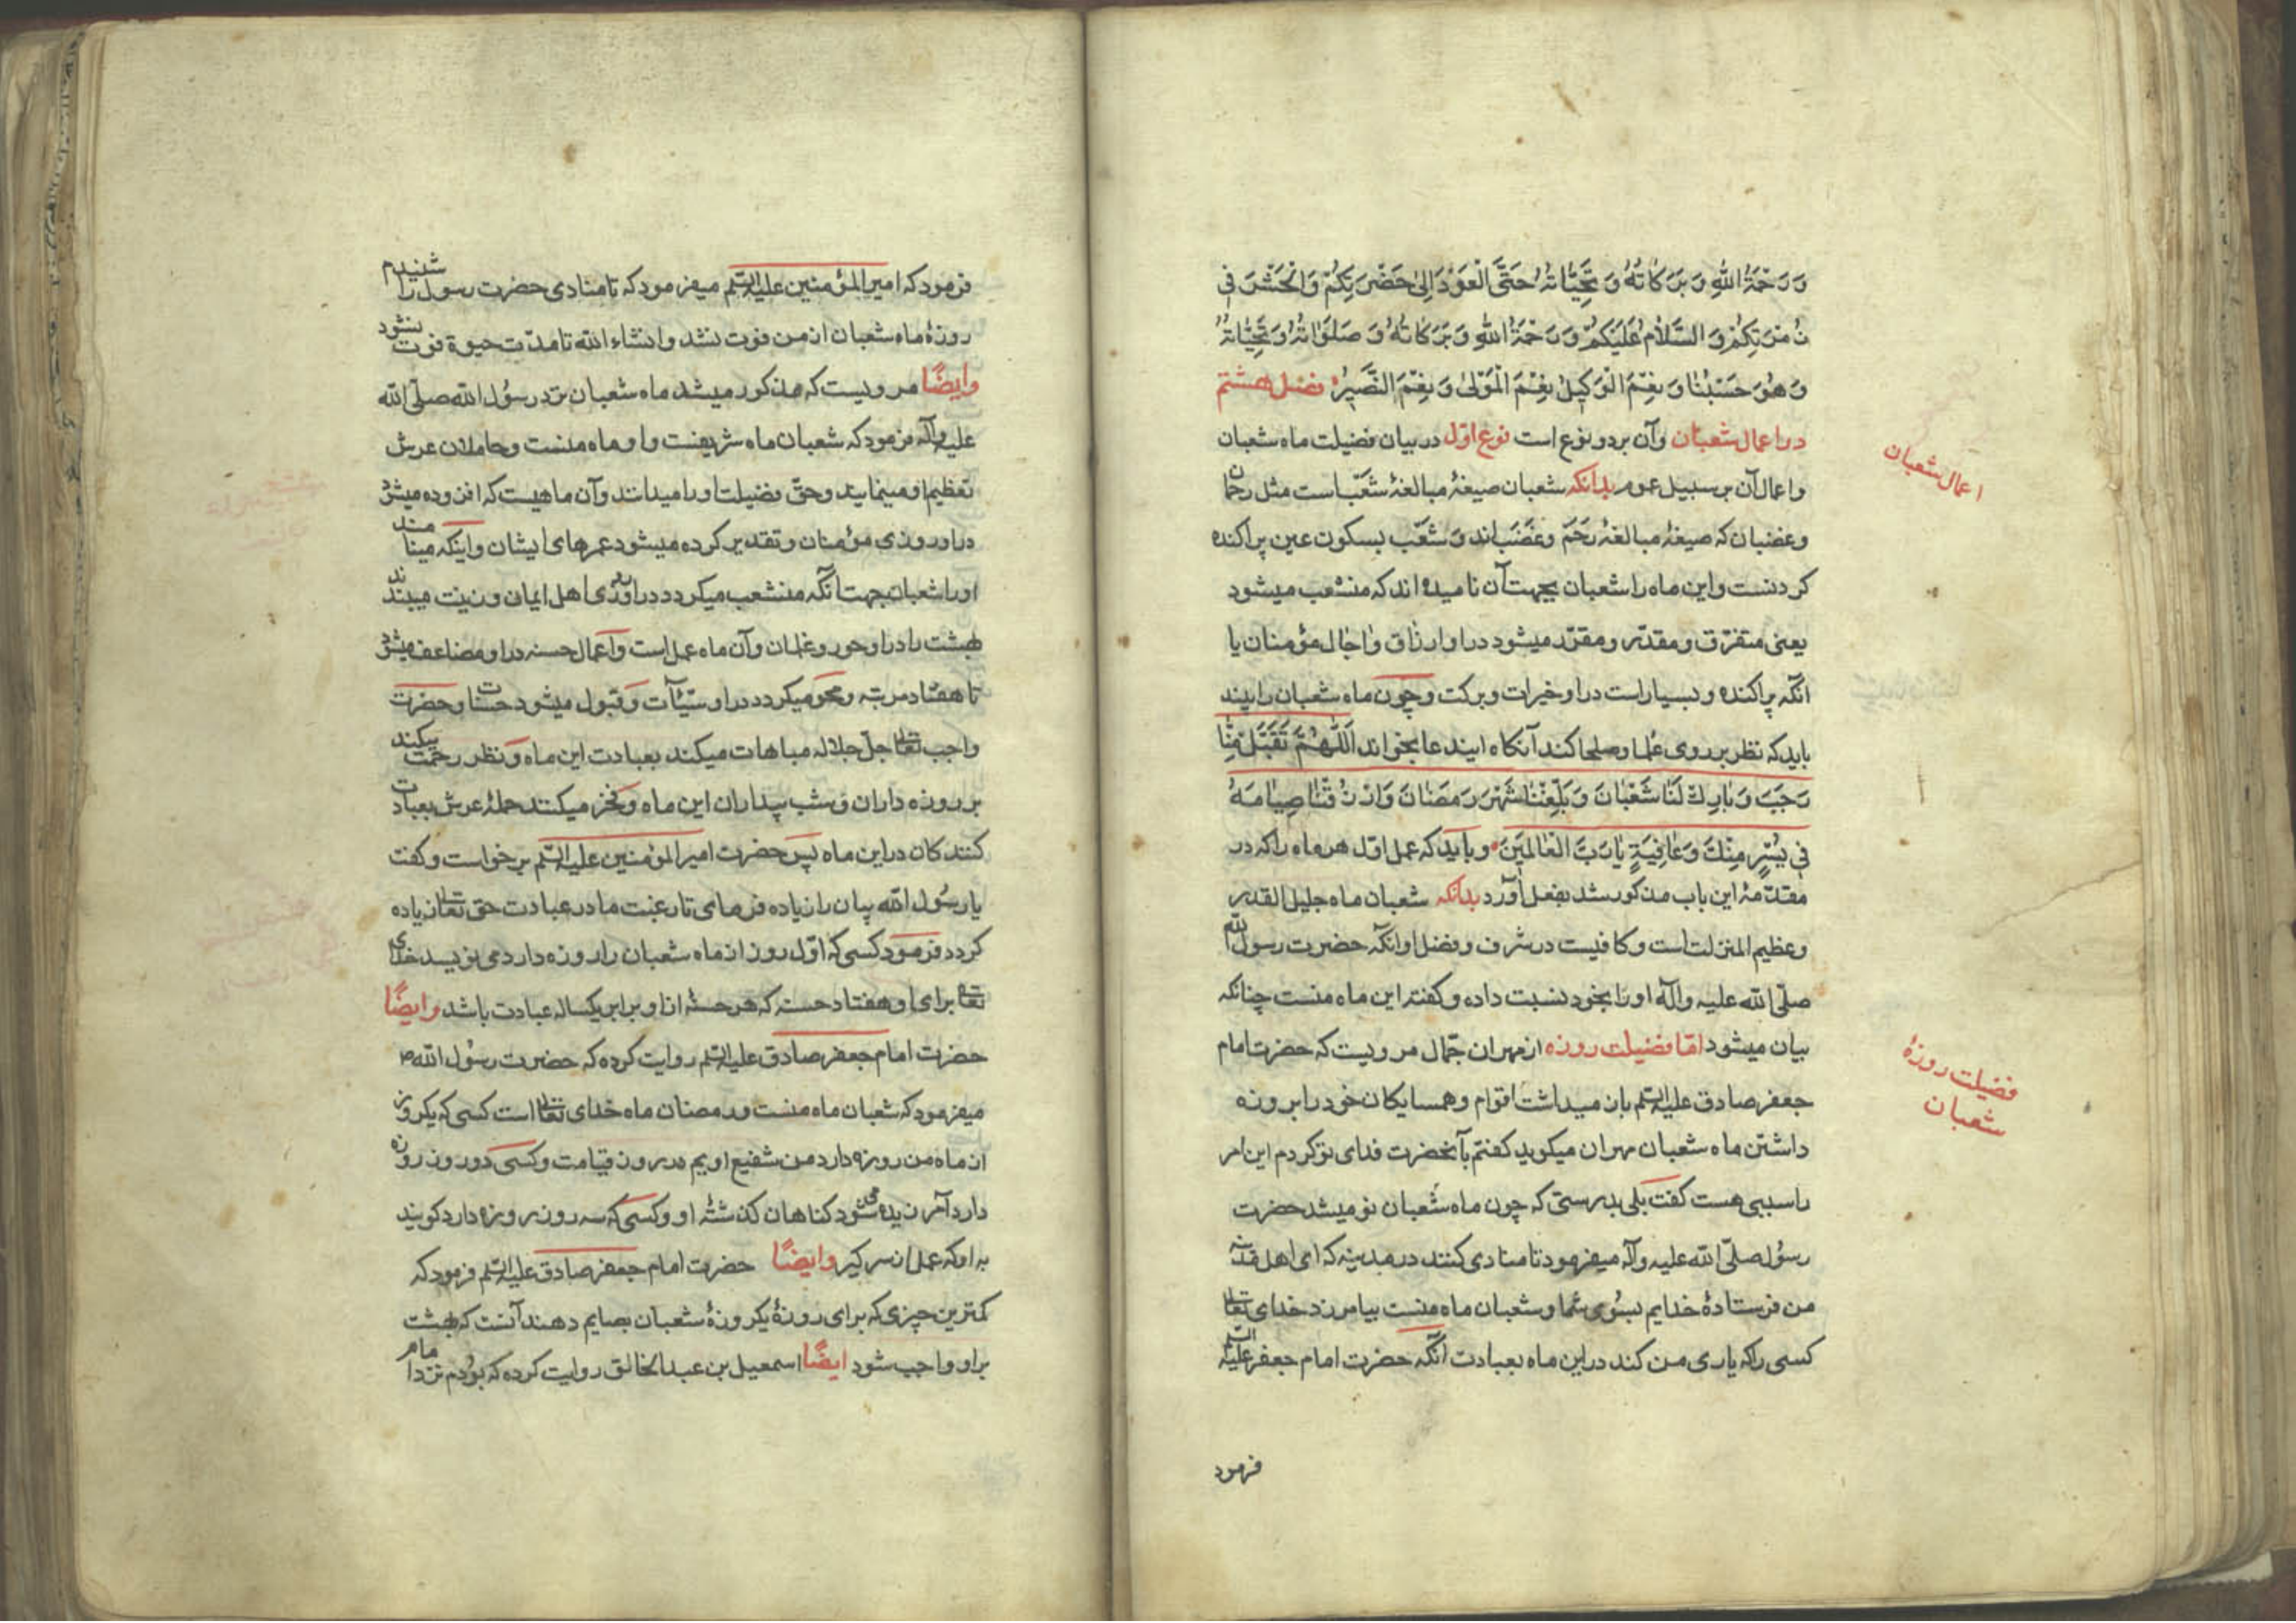 وَرَحْمَةُ اللهِ وَبَرَكَاتُهُ وَتَحِيَّاتُهُ حَتَّى الْعَوْدَ اِلىٰ حَضْرَتِكُمْ وَالْحَشْرَ فِي
زُمْرَتِكُمْ وَالسَّلَامُ عَلَيْكُمْ وَرَحْمَةُ اللهِ وَبَرَكَاتُهُ وَصَلَوَاتُهُ وَتَحِيَّاتُهُ
وَهُوَ حَسْبُنَا وَنِعْمَ الْوَكِيلُ نِعْمَ الْمَوْلىٰ وَنِعْمَ النَّصِيرُ فصل هشتم
در اعمال شعبان وآن بر دو نوع است نوع اوّل در بیان فضیلت ماه شعبان
واعمال آن بر سبیل عموم بدانکه شعبان صیغهٔ مبالغهٔ شَعْب است مثل رحمان
وغضبان که صیغهٔ مبالغهٔ رَحَم وغَضَب اند وَشَعْب بسکون عین پراکنده
کردنست واین ماه را شعبان بجهت آن نامیده اند که منشعب میشود
یعنی متفرّق ومقدّر ومقرّر میشود در او ارزاق واجال مؤمنان یا
انکه پراکنده وبسیار است در او خیرات وبرکت وچون ماه شعبان را بیند
باید که نظر بر روی علما وصلحا کند آنکاه ایندعا بخواند اَللّٰهُمَّ تَقَبَّلْ مِنَّا
رَجَبَ وَبَارِكْ لَنَا شَعْبَانَ وَبَلِّغْنَا شَهْرَ رَمَضَانَ وَارْزُقْنَا صِيَامَهُ
فِي يُسْرٍ مِنْكَ وَعَافِيَةٍ يَا رَبَّ الْعَالَمِينَ وباید که عمل اوّل هر ماه را که در
مقدّمهٔ این باب مذکور شد بفعل آورد بدانکه شعبان ماه جلیل القدر
وعظیم المنزلت است وکافیست در شرف وفضل او انکه حضرت رسول الله
صلّی الله علیه وآله او را بخود نسبت داده وکفته این ماه منست چنانکه
بیان میشود امّا فضیلت روزه از مهران جمّال مرویست که حضرت امام
جعفر صادق علیه السّلم بازمیداشت اقوام وهمسایکان خود را بروزه
داشتن ماه شعبان مهران میکوید کفتم بآنحضرت فدای تو کردم این امر
را سببی هست کفت بلی بدرستی که چون ماه شعبان نو میشد حضرت
رسول صلّی الله علیه وآله میفرمود تا منادی کنند در مدینه که ای اهل مدینه
من فرستادهٔ خدایم بسوی شما وشعبان ماه منست بیامرزد خدای تعالی
کسی را که یاری من کند در این ماه بعبادت انکه حضرت امام جعفر علیه السلم
فرمود
اعمال شعبان
فضیلت روزهٔ
شعبان
فرمود که امیر المؤمنین علیه السّلم میفرمود که تا منادی حضرت رسول را شنیدم
روزهٔ ماه شعبان از من فوت نشد وانشاء الله تا مدّت حیوة فوت نشود
وایضًا مرویست که مذکور میشد ماه شعبان نزد رسول الله صلّی الله
علیه وآله فرمود که شعبان ماه شریفست واو ماه منست وحاملان عرش
تعظیم او مینمایند وحقّ فضیلت او را میدانند وآن ماهیست که افزوده میشود
در او روزی مؤمنان وتقدیر کرده میشود عمرهای ایشان واینکه مینامند
او را شعبان بجهت انکه منشعب میکردد در او روزی اهل ایمان وزینت میبندند
بهشت را در او حور وغلمان وآن ماه عمل است واعمال حسنه در او مضاعف میشود
تا هفتاد مرتبه ومحو میکردد در او سیّئات وقبول میشود حسنات وحضرت
واجب تعالی جلّ جلاله مباهات میکند بعبادت این ماه ونظر رحمت میکند
بر روزه داران وشب بیداران این ماه وفخر میکنند حملهٔ عرش بعبادت
کنندکان در این ماه پس حضرت امیر المؤمنین علیه السّلم برخواست وکفت
یا رسول الله بیان را زیاده فرمای تا رغبت ما در عبادت حق تعالی زیاده
کردد فرمود کسی که اوّل روز از ماه شعبان را روزه دارد می نویسد خدای
تعالی برای او هفتاد حسنه که هر حسنهٔ از او برابر یکساله عبادت باشد وایضًا
حضرت امام جعفر صادق علیه السّلم روایت کرده که حضرت رسول الله ص
میفرمود که شعبان ماه منست ورمضان ماه خدای تعالی است کسی که یکروز
از ماه من روزه دارد من شفیع اویم در روز قیامت وکسی دو روز روزه
دارد آمرزیده میشود کناهان کذشتهٔ او وکسی که سه روز روزه دارد کویند
به او که عمل از سر کیر وایضًا حضرت امام جعفر صادق علیه السّلم فرمود که
کمترین چیزی که برای روزهٔ یکروزهٔ شعبان بصایم دهند آنست که بهشت
بر او واجب شود ایضًا اسمعیل بن عبد الخالق روایت کرده که بودم نزد امام